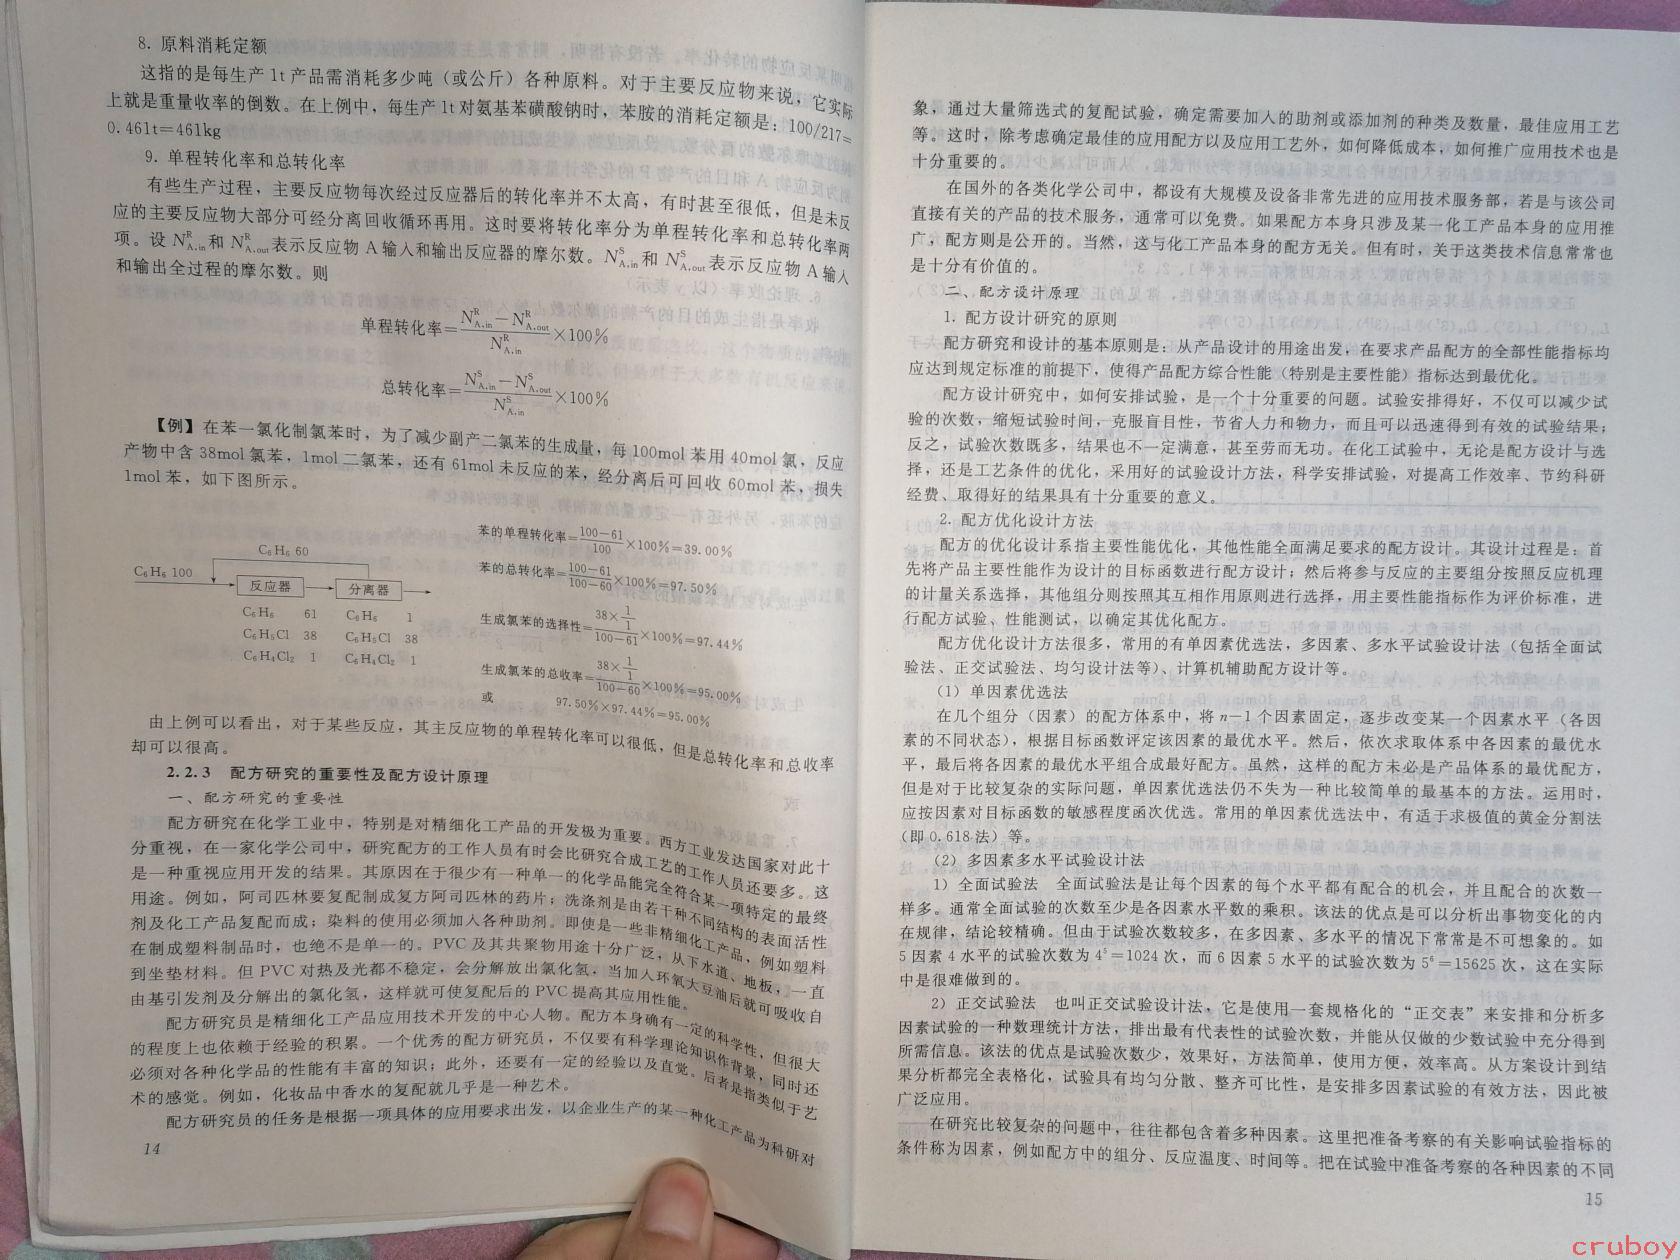 8. 原料消耗定额
这指的是每生产 1t 产品需消耗多少吨（或公斤）各种原料。对于主要反应物来说，它实际
上就是重量收率的倒数。在上例中，每生产 1t 对氨基苯磺酸钠时，苯胺的消耗定额是：100/217=
0.461t=461kg
9. 单程转化率和总转化率
有些生产过程，主要反应物每次经过反应器后的转化率并不太高，有时甚至很低，但是未反
应的主要反应物大部分可经分离回收循环再用。这时要将转化率分为单程转化率和总转化率两
项。设 N^R_{A,in} 和 N^R_{A,out} 表示反应物 A 输入和输出反应器的摩尔数。N^S_{A,in} 和 N^S_{A,out} 表示反应物 A 输入
和输出全过程的摩尔数。则
单程转化率=(N^R_{A,in}−N^R_{A,out})/N^R_{A,in}×100%
总转化率=(N^S_{A,in}−N^S_{A,out})/N^S_{A,in}×100%
【例】在苯一氯化制氯苯时，为了减少副产二氯苯的生成量，每 100mol 苯用 40mol 氯，反应
产物中含 38mol 氯苯，1mol 二氯苯，还有 61mol 未反应的苯，经分离后可回收 60mol 苯，损失
1mol 苯，如下图所示。
C₆H₆ 60
C₆H₆ 100
反应器 分离器
C₆H₆ 61 C₆H₆ 1
C₆H₅Cl 38 C₆H₅Cl 38
C₆H₄Cl₂ 1 C₆H₄Cl₂ 1
苯的单程转化率=(100−61)/100×100%=39.00%
苯的总转化率=(100−61)/(100−60)×100%=97.50%
生成氯苯的选择性=(38×1/1)/(100−61)×100%=97.44%
生成氯苯的总收率=(38×1/1)/(100−60)×100%=95.00%
或 97.50%×97.44%=95.00%
由上例可以看出，对于某些反应，其主反应物的单程转化率可以很低，但是总转化率和总收率
却可以很高。
2.2.3 配方研究的重要性及配方设计原理
一、配方研究的重要性
配方研究在化学工业中，特别是对精细化工产品的开发极为重要。西方工业发达国家对此十
分重视，在一家化学公司中，研究配方的工作人员有时会比研究合成工艺的工作人员还要多。这
是一种重视应用开发的结果。其原因在于很少有一种单一的化学品能完全符合某一项特定的最终
用途。例如，阿司匹林要复配制成复方阿司匹林的药片；洗涤剂是由若干种不同结构的表面活性
剂及化工产品复配而成；染料的使用必须加入各种助剂。即使是一些非精细化工产品，例如塑料
在制成塑料制品时，也绝不是单一的。PVC 及其共聚物用途十分广泛，从下水道、地板，一直
到坐垫材料。但 PVC 对热及光都不稳定，会分解放出氯化氢，当加入环氧大豆油后就可吸收自
由基引发剂及分解出的氯化氢，这样就可使复配后的 PVC 提高其应用性能。
配方研究员是精细化工产品应用技术开发的中心人物。配方本身确有一定的科学性，但很大
的程度上也依赖于经验的积累。一个优秀的配方研究员，不仅要有科学理论知识作背景，同时还
必须对各种化学品的性能有丰富的知识；此外，还要有一定的经验以及直觉。后者是指类似于艺
术的感觉。例如，化妆品中香水的复配就几乎是一种艺术。
配方研究员的任务是根据一项具体的应用要求出发，以企业生产的某一种化工产品为科研对
14
象，通过大量筛选式的复配试验，确定需要加入的助剂或添加剂的种类及数量，最佳应用工艺
等。这时，除考虑确定最佳的应用配方以及应用工艺外，如何降低成本，如何推广应用技术也是
十分重要的。
在国外的各类化学公司中，都设有大规模及设备非常先进的应用技术服务部，若是与该公司
直接有关的产品的技术服务，通常可以免费。如果配方本身只涉及某一化工产品本身的应用推
广，配方则是公开的。当然，这与化工产品本身的配方无关。但有时，关于这类技术信息常常也
是十分有价值的。
二、配方设计原理
1. 配方设计研究的原则
配方研究和设计的基本原则是：从产品设计的用途出发，在要求产品配方的全部性能指标均
应达到规定标准的前提下，使得产品配方综合性能（特别是主要性能）指标达到最优化。
配方设计研究中，如何安排试验，是一个十分重要的问题。试验安排得好，不仅可以减少试
验的次数，缩短试验时间，克服盲目性，节省人力和物力，而且可以迅速得到有效的试验结果；
反之，试验次数既多，结果也不一定满意，甚至劳而无功。在化工试验中，无论是配方设计与选
择，还是工艺条件的优化，采用好的试验设计方法，科学安排试验，对提高工作效率、节约科研
经费、取得好的结果具有十分重要的意义。
2. 配方优化设计方法
配方的优化设计系指主要性能优化，其他性能全面满足要求的配方设计。其设计过程是：首
先将产品主要性能作为设计的目标函数进行配方设计；然后将参与反应的主要组分按照反应机理
的计量关系选择，其他组分则按照其互相作用原则进行选择，用主要性能指标作为评价标准，进
行配方试验、性能测试，以确定其优化配方。
配方优化设计方法很多，常用的有单因素优选法，多因素、多水平试验设计法（包括全面试
验法、正交试验法、均匀设计法等）、计算机辅助配方设计等。
（1）单因素优选法
在几个组分（因素）的配方体系中，将 n−1 个因素固定，逐步改变某一个因素水平（各因
素的不同状态），根据目标函数评定该因素的最优水平。然后，依次求取体系中各因素的最优水
平，最后将各因素的最优水平组合成最好配方。虽然，这样的配方未必是产品体系的最优配方，
但是对于比较复杂的实际问题，单因素优选法仍不失为一种比较简单的最基本的方法。运用时，
应按因素对目标函数的敏感程度函次优选。常用的单因素优选法中，有适于求极值的黄金分割法
（即 0.618 法）等。
（2）多因素多水平试验设计法
1）全面试验法 全面试验法是让每个因素的每个水平都有配合的机会，并且配合的次数一
样多。通常全面试验的次数至少是各因素水平数的乘积。该法的优点是可以分析出事物变化的内
在规律，结论较精确。但由于试验次数较多，在多因素、多水平的情况下常常是不可想象的。如
5 因素 4 水平的试验次数为 4⁵=1024 次，而 6 因素 5 水平的试验次数为 5⁶=15625 次，这在实际
中是很难做到的。
2）正交试验法 也叫正交试验设计法，它是使用一套规格化的“正交表”来安排和分析多
因素试验的一种数理统计方法，排出最有代表性的试验次数，并能从仅做的少数试验中充分得到
所需信息。该法的优点是试验次数少，效果好，方法简单，使用方便，效率高。从方案设计到结
果分析都完全表格化，试验具有均匀分散、整齐可比性，是安排多因素试验的有效方法，因此被
广泛应用。
在研究比较复杂的问题中，往往都包含着多种因素。这里把准备考察的有关影响试验指标的
条件称为因素，例如配方中的组分、反应温度、时间等。把在试验中准备考察的各种因素的不同
15
cruboy